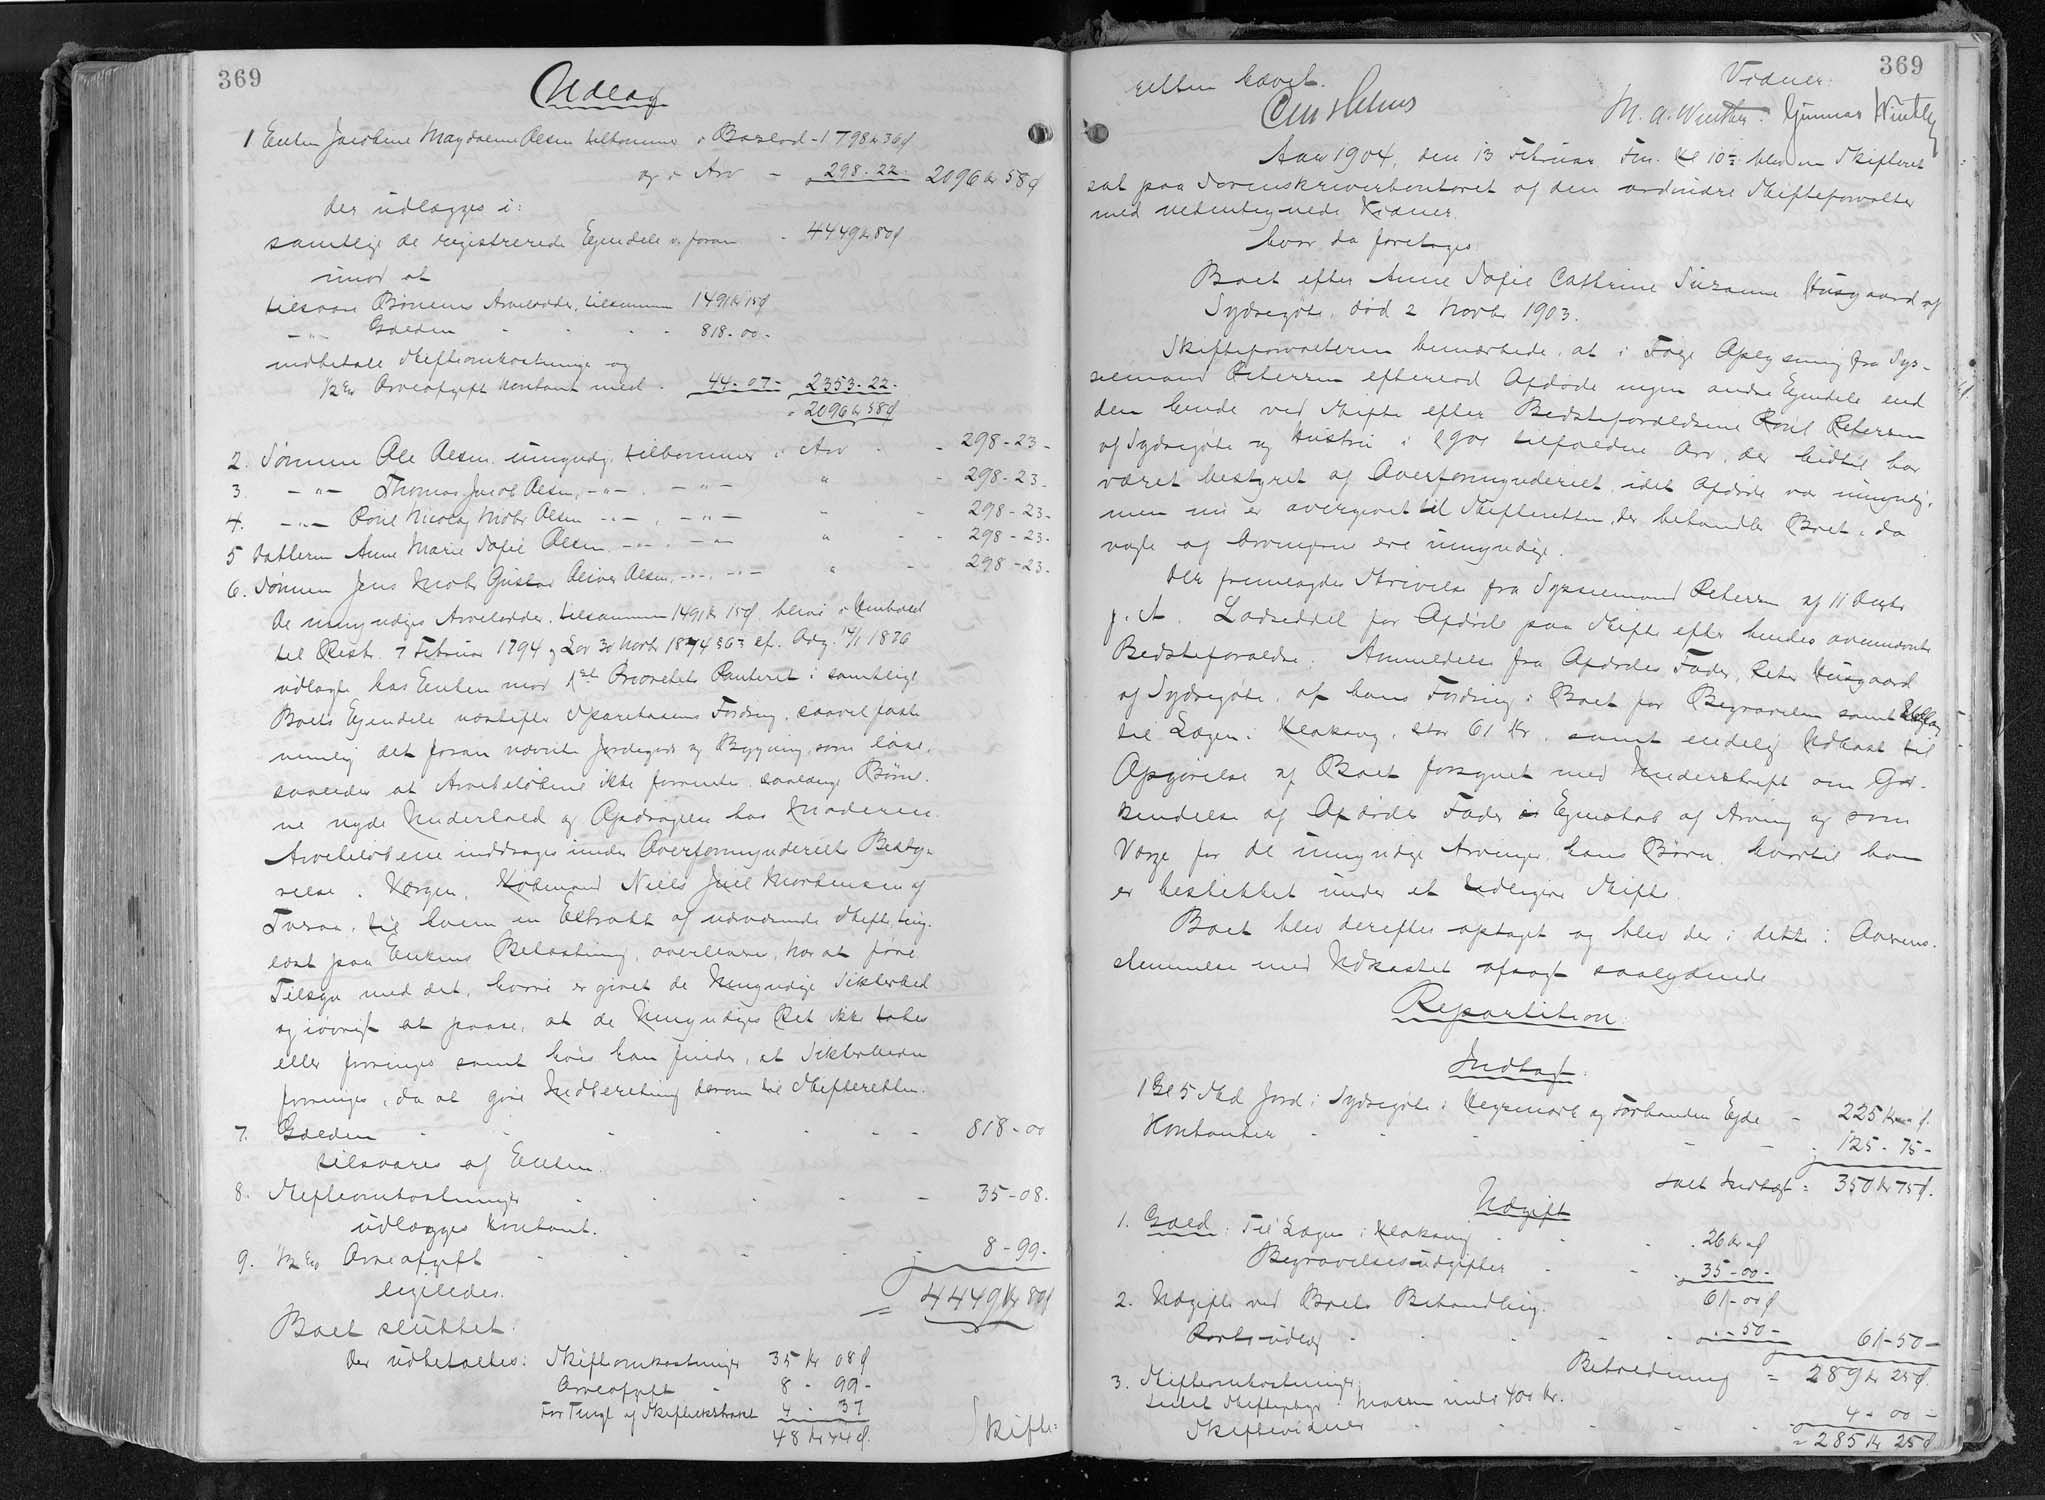 369
Udlæg
1 Enken Jacobine Magdalene Olsen tilkommer i Boslod - 1798 Kr 36 Ø
og i Arv - 298 - 22 - 2096 Kr 58 Ø
der udlægges i:
samtlige de registrerede Ejendele v. foran - 4449 Kr 80 Ø
imod at
tilsvare Børnenes Arvelodder, tilsammen 1491 Kr 15 Ø
- " - Gælden - - - - 818 - 00 -
indbetale Skifteomkostninger og
1/2 % Arveafgift kontant med - 44 - 07 - 2353 - 22 -
2096 Kr 58 Ø
2. Sønnen Ole Olsen, umyndig, tilkommer i Arv - - 298 - 23 -
3. - " - Thomas Jacob Olsen, - " - , - " - " - 298 - 23 -
4. - " - Poul Nicolaj Mohr Olsen - " - , - " - " - 298 - 23 -
5 Datteren Anne Marie Sofie Olsen, - " - , - " - " - - 298 - 23 -
6. Sønnen Jens Mohr Gustav Oliver Olsen, - " - , - " - " - 298 - 23 -
De umyndiges Arvelodder, tilsammen 1491 Kr 15 Ø, blive i Henhold
til Reskr. 7 Februar 1794 og Lov 30 Novbr 1874 § 63 cf. Ang. 14/1 1876
udlagte hos Enken mod 1st Prioritets Panteret i samtlige
Boets Ejendele næstefter Sparekassens Fordring, saavel faste
nemlig det foran nævnte Jordegods og Bygning, som løse,
saaledes at Arvebeløbene ikke forrentes saalænge Børne-
ne nyde Underhold og Opdragelse hos Moderen.
Arvebeløbene inddrages under Overformynderiets Besty-
relse. Værgen, Købmand Niels Juel Mortensen af
Tveraa, til hvem en Ekstrakt af nærværende Skifte, ting-
læst paa Enkens Bekostning, overleveres, har at føre
Tilsyn med det, hvori er givet de Umyndige Sikkerhed
og iøvrigt at paase, at de Umyndiges Ret ikke tabes
eller forringes samt hvis han finder, at Sikkerheden
forringes, da at give Indberetning derom til Skifteretten.
7. Gælden - - - - - - - 818 - 00
tilsvares af Enken.
8. Skifteomkostninger - - - - - 35 - 08.
udlægges kontant.
9. 1/2 % Arveafgift - - - - - 8 - 99 -
ligeledes.
= 4449 Kr 80 Ø
Boet sluttet.
Der udbetaltes: Skifteomkostninger 35 Kr 08 Ø
Arveafgift - 8 - 99 -
For Tingl. af Skifteekstrakt 4 - 37
48 Kr 44 Ø.
Skifte-
369
retten hævet.
Vidner:
M. A. Winther. Gunnar Winther
Aar 1904, den 13 Februar Fm. Kl 10 1/2 blev en Skifteret
sat paa Sorenskriverkontoret af den ordinære Skifteforvalter
med undertegnede Vidner
hvor da foretages:
Boet efter Anne Sofie Cathrine Susanne Husgaard af
Sydregøte, død 2 Novbr 1903.
Skifteforvalteren bemærkede, at i Følge Oplysning fra Sys-
selmand Petersen efterlod Afdøde ingen andre Ejendele end
den hende ved Skifte efter Bedsteforældrene Poul Petersen
af Sydregøte og Hustru i 1901 tilfaldne Arv, der hidtil har
været bestyret af Overformynderiet, idet Afdøde var umyndig,
men nu er overgivet til Skifteretten, der behandler Boet, da
nogle af Arvingerne ere umyndige.
Der fremlagdes Skrivelse fra Sysselmand Petersen af 11 Decbr
f. A. Lodseddel for Afdøde paa Skifte efter hendes ovennævnte
Bedsteforældre. Anmeldelse fra Afdødes Fader, Peter Husgaard
af Sydregøte, af hans Fordring i Boet for Begravelsen samt Udlæg
til Lægen i Klaksvig, stor 61 Kr, samt endelig Udkast til
Opgørelse af Boet forsynet med Underskrift om God-
kendelse af Afdødes Fader i Egenskab af Arving og som
Værge for de umyndige Arvinger, hans Børn, hvortil han
er beskikket under et tidligere Skifte.
Boet blev derefter optaget og blev der i dette i Overens-
stemmelse med Udkastet afsagt saalydende
Repartition.
Indtægt.
1 Gl 5 Skd Jord i Sydregøte i Kegsmark og Forhanden Ejde - 225 Kr - Ø.
Kontanter - - - - - - 125 - 75 -
Ialt Indtægt = 350 Kr 75 Ø.
Udgift
1. Gæld: Til Lægen i Klaksvig - - - 26 Kr - Ø
Begravelsesudgifter - - 35 - 00 -
61 - 00 Ø
2. Udgifter ved Boets Behandling.
Portoudlæg - - - - - 50 - 61 - 50 -
Beholdning = 289 Kr 25 Ø.
3. Skifteomkostninger,
Massen under 400 Kr.
Skiftevidner - - - - - 4 - 00 -
= 285 Kr 25 Ø